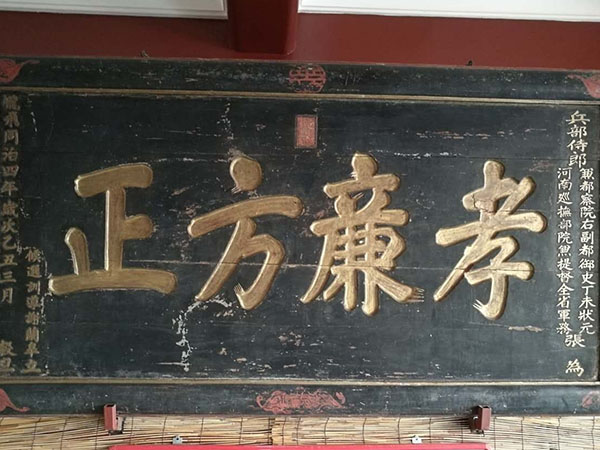 兵部侍郎兼都察院右副都御史丁未狀元張為
河南巡撫部院兼提督全省軍務
孝廉方正
龍飛同治四年歲次乙丑三月
候選訓導